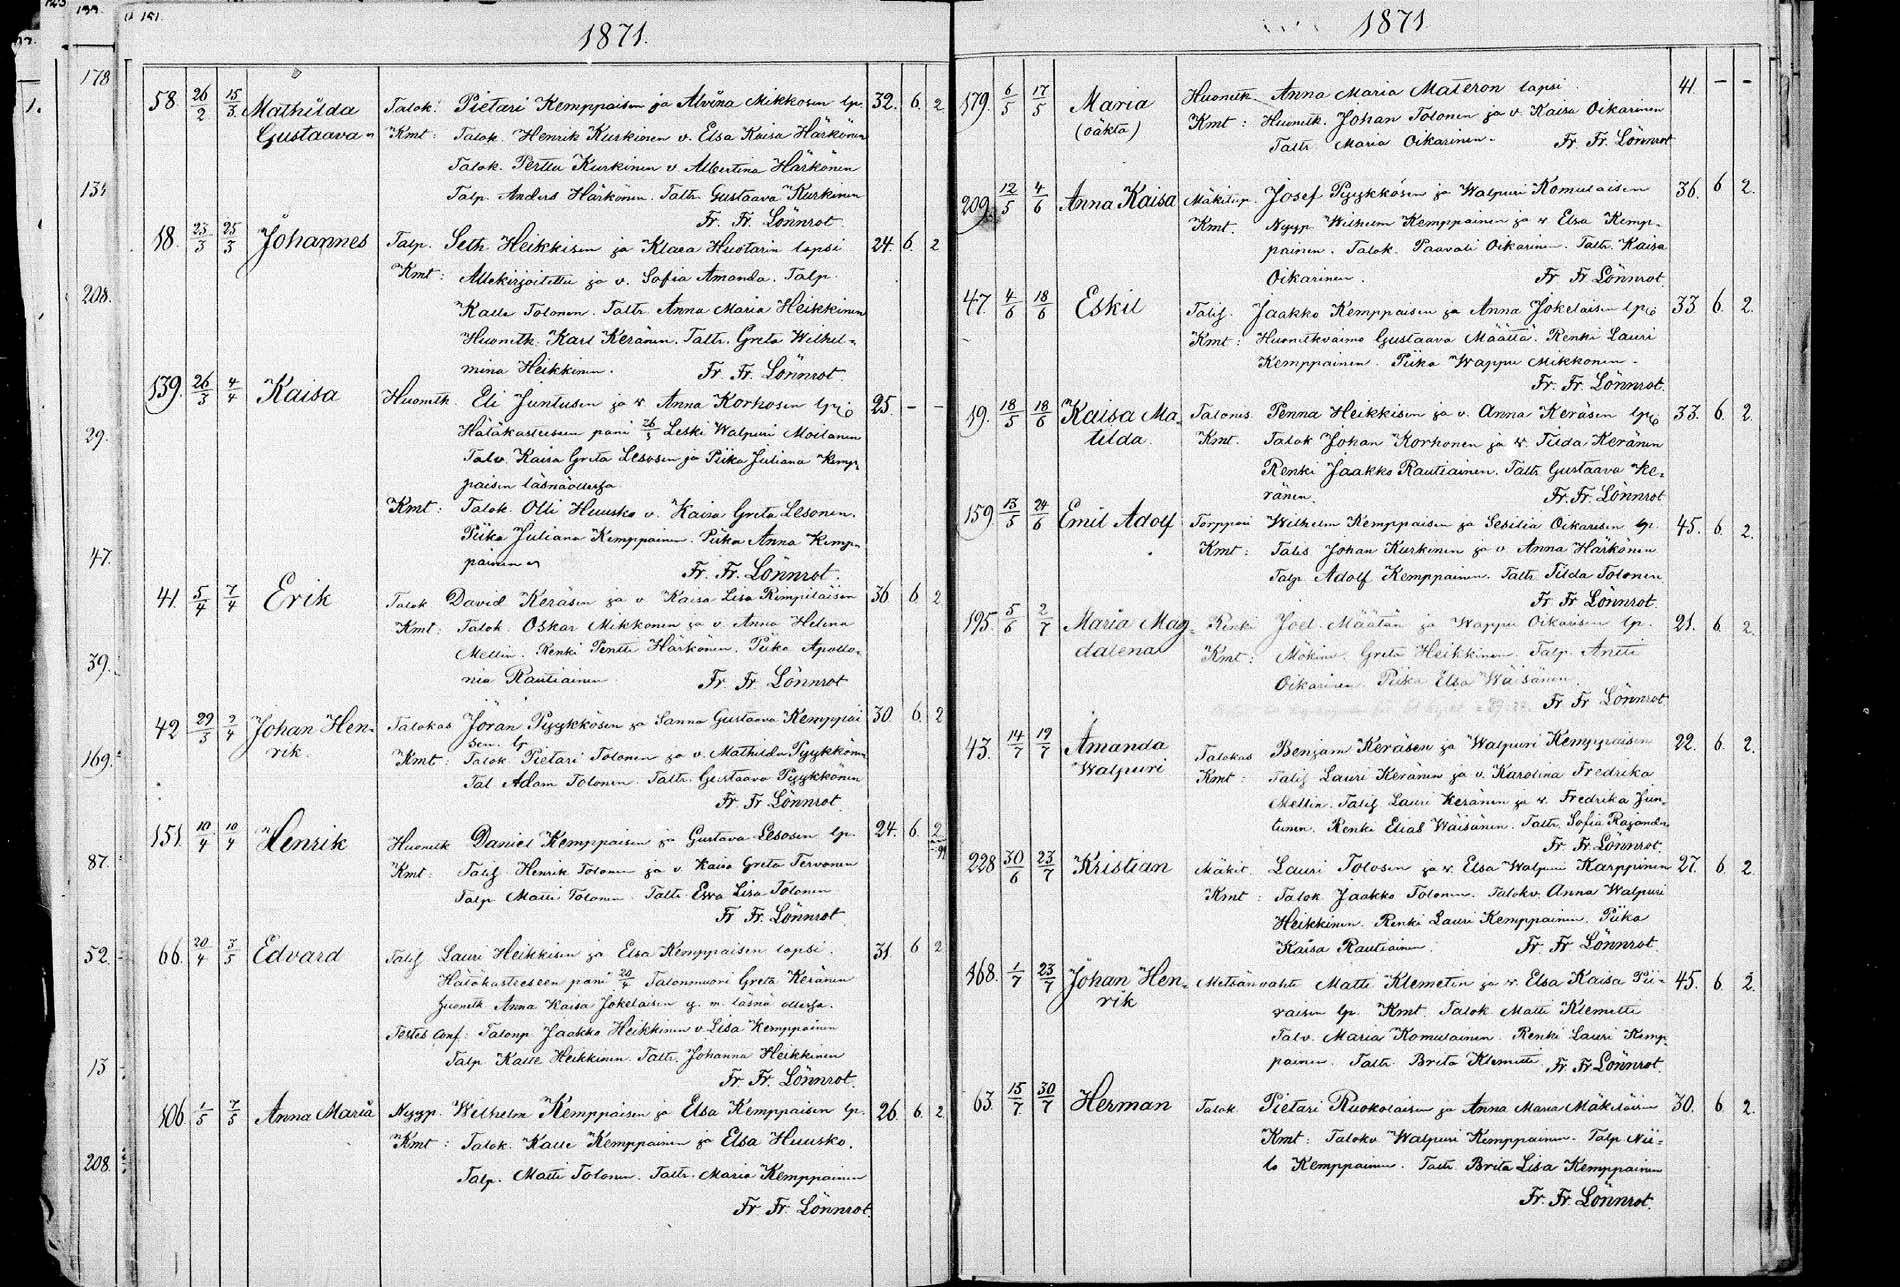 1871.
58. 26/2 15/3 Mathilda Talok: Pietari Kemppaisen ja Alvina Mikkosen lp. 32. 6. 2
Gustaava Kmt: Talok. Henrik Kurkinen v. Elsa Kaisa Härkönen
Talok. Perttu Kurkinen v Albertina Härkönen
Talp. Anders Härkönen. Taltr. Gustaava Kurkinen
Fr. Fr. Lönnrot.
18. 23/3 25/3 Johannes Talp. Seth Heikkisen ja Klara Huotarin lapsi 24. 6. 2
Kmt: Allekirjoitettu ja v. Sofia Amanda. Talp.
Kalle Tolonen. Taltr. Anna Maria Heikkinen
Huonetk. Karl Keränen. Taltr. Greta Wilhel-
mina Heikkinen. Fr. Fr. Lönnrot
139. 26/3 4/4 Kaisa Huonetk. Eli Juntusen ja v. Anna Korhosen lpsi 25. – –
Hätäkasteeseen pani 26/3 Leski Walpuri Moilanen
Talv. Kaisa Greta Lesosen ja Piika Juliana Kemp-
paisen läsnäollessa.
Kmt: Talok. Olli Huusko v. Kaisa Greta Lesonen.
Piika Juliana Kemppainen. Piika Anna Kemp-
painen Fr. Fr. Lönnrot.
41. 5/4 7/4 Erik Talok David Keräsen ja v Kaisa Lisa Kimpiläisen 36 6 2
Kmt: Talok. Oskar Mikkonen ja v. Anna Helena
Mellin. Renki Pentti Härkönen. Piika Apollo-
nia Rautiainen Fr. Fr. Lönnrot
42 29/3 2/4 Johan Hen- Talokas Jöran Pyykkösen ja Sanna Gustaava Kemppai 30. 6. 2
rik. sen. lp
Kmt: Talok Pietari Tolonen ja v. Mathilda Pyykkönen
Tal Adam Tolonen. Taltr. Gustaava Pyykkönen
Fr Fr Lönnrot.
151. 10/4 10/4 Henrik Huonetk Daniel Kemppaisen ja Gustava Lesosen lp. 24. 6. 2
Kmt: Henrik Tolonen ja v Kaisa Greta Tervonen
Talp Matti Tolonen. Taltr Ewa Lisa Tolonen
Fr Fr. Lönnrot.
66. 20/4 3/5 Edvard Lauri Heikkisen ja Elsa Kemppaisen lapsi. 31. 6 2
Hätäkasteeseen pani 20/4 Talonmuori Greta Keränen
huonetk Anna Kaisa Jokelaisen y. m. läsnä ollessa.
Testes conf: Talonp Jaakko Heikkinen v. Lisa Kemppainen
Talp Kalle Heikkinen. Taltr. Johanna Heikkinen
Fr. Fr. Lönnrot.
106. 1/5 7/5 Anna Maria Nyyp. Wilhelm Kemppaisen ja Elsa Kemppaisen lp. 26 6. 2
Kmt: Talok. Kalle Kemppainen ja Elsa Huusko.
Talp. Matti Tolonen. Taltr. Maria Kemppainen
Fr. Fr. Lönnrot.
178
208.
29.
47.
39.
169.
87.
52.
13
208.
1871
179. 6/5 17/5 Maria Huonetk Anna Maria Materon lapsi. 41. – –
(oäkta) Kmt: Huonetk. Johan Tolonen ja v. Kaisa Oikarinen
Taltr. Maria Oikarinen. Fr Fr. Lönnrot
209. 12/5 4/6 Anna Kaisa Mäkitup. Josef Pyykkösen ja Walpuri Komulaisen 36. 6 2.
Kmt. Nyyp. Wilhelm Kemppainen ja v Elsa Kemp-
painen. Talok. Paavali Oikarinen. Taltr. Kaisa
Oikarinen. Fr. Fr Lönnrot
47. 4/6 18/6 Eskil Jaakko Kemppaisen ja Anna Jokelaisen lpsi 33. 6. 2.
Kmt: Huonetkvaimo Gustaava Määttä. Renki Lauri
Kemppainen. Piika Wappu Mikkonen.
Fr. Fr. Lönnrot.
19. 18/5 18/6 Kaisa Ma- Talonis. Penna Heikkisen ja v. Anna Keräsen lpsi 33. 6 2.
tilda. Kmt. Talok Johan Korhonen ja v. Tilda Keränen
Renki Jaakko Rautiainen. Taltr. Gustaava Ke-
ränen. Fr. Fr. Lönnrot
159. 13/5 24/6 Emil Adolf Torppari Wilhelm Kemppaisen ja Sesilia Oikarisen lp. 45. 6. 2.
Kmt: Talis Johan Kurkinen ja v Anna Härkönen
Talp Adolf Kemppainen. Taltr. Tilda Tolonen
Fr. Fr Lönnrot.
195. 5/6 2/7 Maria Mag- Renki Joel Määtän ja Wappu Oikarisen lp. 21. 6. 2.
dalena Kmt: Greta Heikkinen. Talp. Antti
Oikarinen. Piika Elsa Wäisänen.
Fr Fr. Lönnrot
43. 14/7 19/7 Amanda Talokas Benjam Keräsen ja Walpuri Kemppaisen 22. 6. 2.
Walpuri Kmt: Lauri Keränen ja v. Karolina Fredrika
Mellin. Lauri Keränen ja v. Fredrika Jun-
tunen. Renki Elias Wäisänen. Taltr. Sofia
Fr Fr. Lönnrot.
228 30/6 23/7 Kristian Mäkit. Lauri Tolosen ja v. Elsa Walpuri Karppinen 27. 6. 2
Kmt: Talok Jaakko Tolonen. Talokv. Anna Walpuri
Heikkinen. Renki Lauri Kemppainen. Piika
Kaisa Rautiainen. Fr Fr Lönnrot.
168. 1/7 23/7 Johan Hen- Metsänvahti Matti Klemetin ja v. Elsa Kaisa Pii- 45. 6. 2.
rik raisen lp. Kmt. Talok Matti Klemetti
Talv. Maria Komulainen. Renki Lauri Kemp-
painen. Taltr. Brita Klemetti. Fr Fr Lönnrot.
63. 15/7 30/7 Herman Talok Pietari Ruokolaisen ja Anna Maria Mäkeläisen 30. 6. 2.
Kmt: Talokv Walpuri Kemppainen. Talp Nii-
lo Kemppainen. Taltr. Brita Lisa Kemppainen
Fr. Fr. Lönnrot.